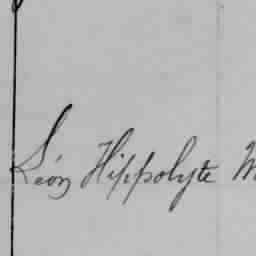 Léon Hippolyte